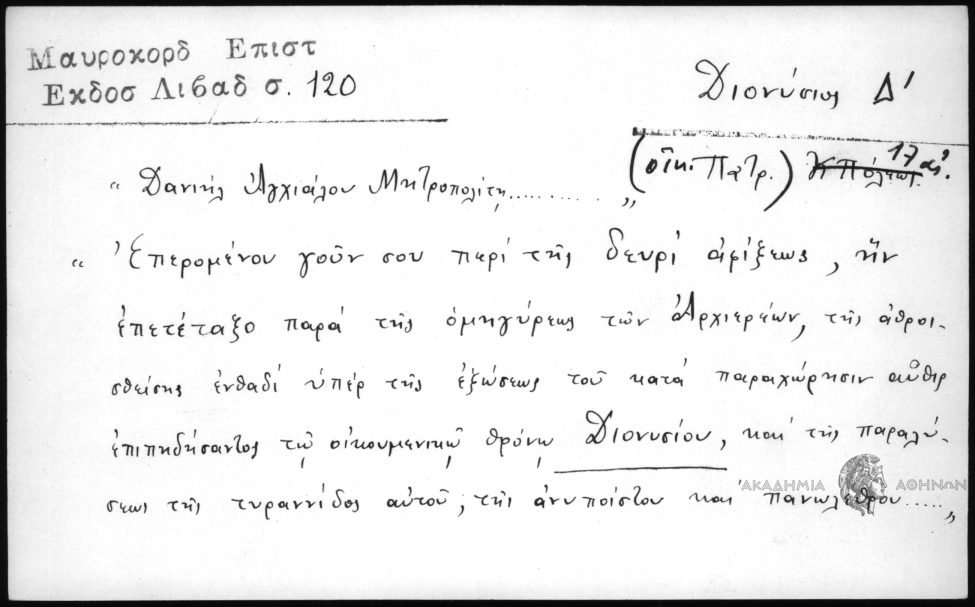 Μαυροκορδ Επιστ
Εκδοσ Λιβαδ σ. 120
Διονύσιος Δ'
(οἰκ. Πατρ.) Κπόλεως. 17 ας.
"Δανιὴλ Ἀγχιάλου Μητροπολίτῃ.........."
"Ἐπερομένου γοῦν σου περί τῆς δευρί ἀφίξεως, ἥν
ἐπετέταξο παρά τῆς ὁμηγύρεως τῶν Ἀρχιερέων, τῆς ἀθροι-
σθείσης ἐνθαδί ὑπέρ τῆς ἐξώσεως τοῦ κατά παραχώρησιν αὖθις
ἐπιπηδήσαντος τῷ οἰκουμενικῷ θρόνῳ Διονυσίου, καί τῆς παραλύ-
σεως τῆς τυραννίδος αὐτοῦ, τῆς ἀνυποίστου καί πανωλέθρου....."
ΑΚΑΔΗΜΙΑ ΑΘΗΝΩΝ